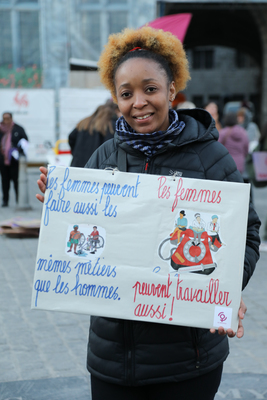 Les femmes peuvent
faire aussi les
mêmes métiers
que les hommes.
Les femmes
peuvent travailler
aussi !